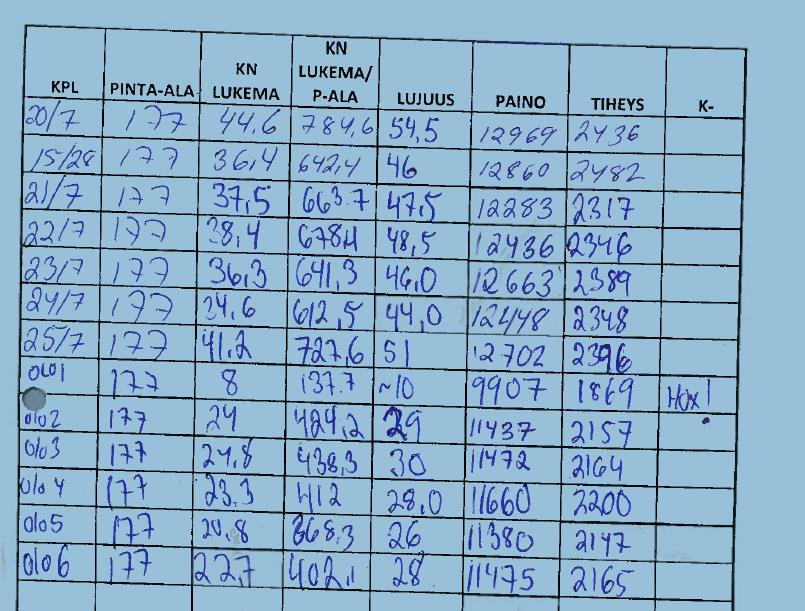 KPL PINTA-ALA KN LUKEMA KN LUKEMA/ P-ALA LUJUUS PAINO TIHEYS K-
20/7 177 44.6 784,6 54,5 12969 2436
15/28 177 36,4 642,4 46 12860 2482
21/7 177 37,5 663.7 47,5 12283 2317
22/7 177 38,4 678,1 48,5 12436 2346
23/7 177 36,3 641,3 46,0 12663 2389
24/7 177 34,6 612,5 44,0 12448 2348
25/7 177 41,2 727,6 51 12702 2396
177 8 137.7 ~10 9907 1869 Hox!
0lo2 177 24 424,2 29 11437 2157
0lo3 177 24,8 438,3 30 11472 2164
0lo4 177 23.3 412 28,0 11660 2200
0lo5 177 20,8 368,3 26 11380 2147
0lo6 177 22,7 402,1 28 11475 2165